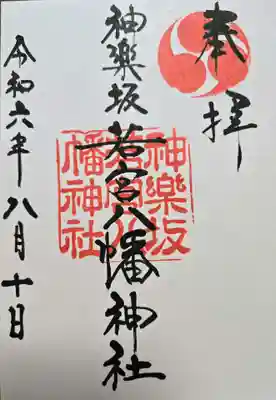 奉拝
神楽坂
若宮八幡神社
神樂坂
若宮八
幡神社
令和六年八月十日